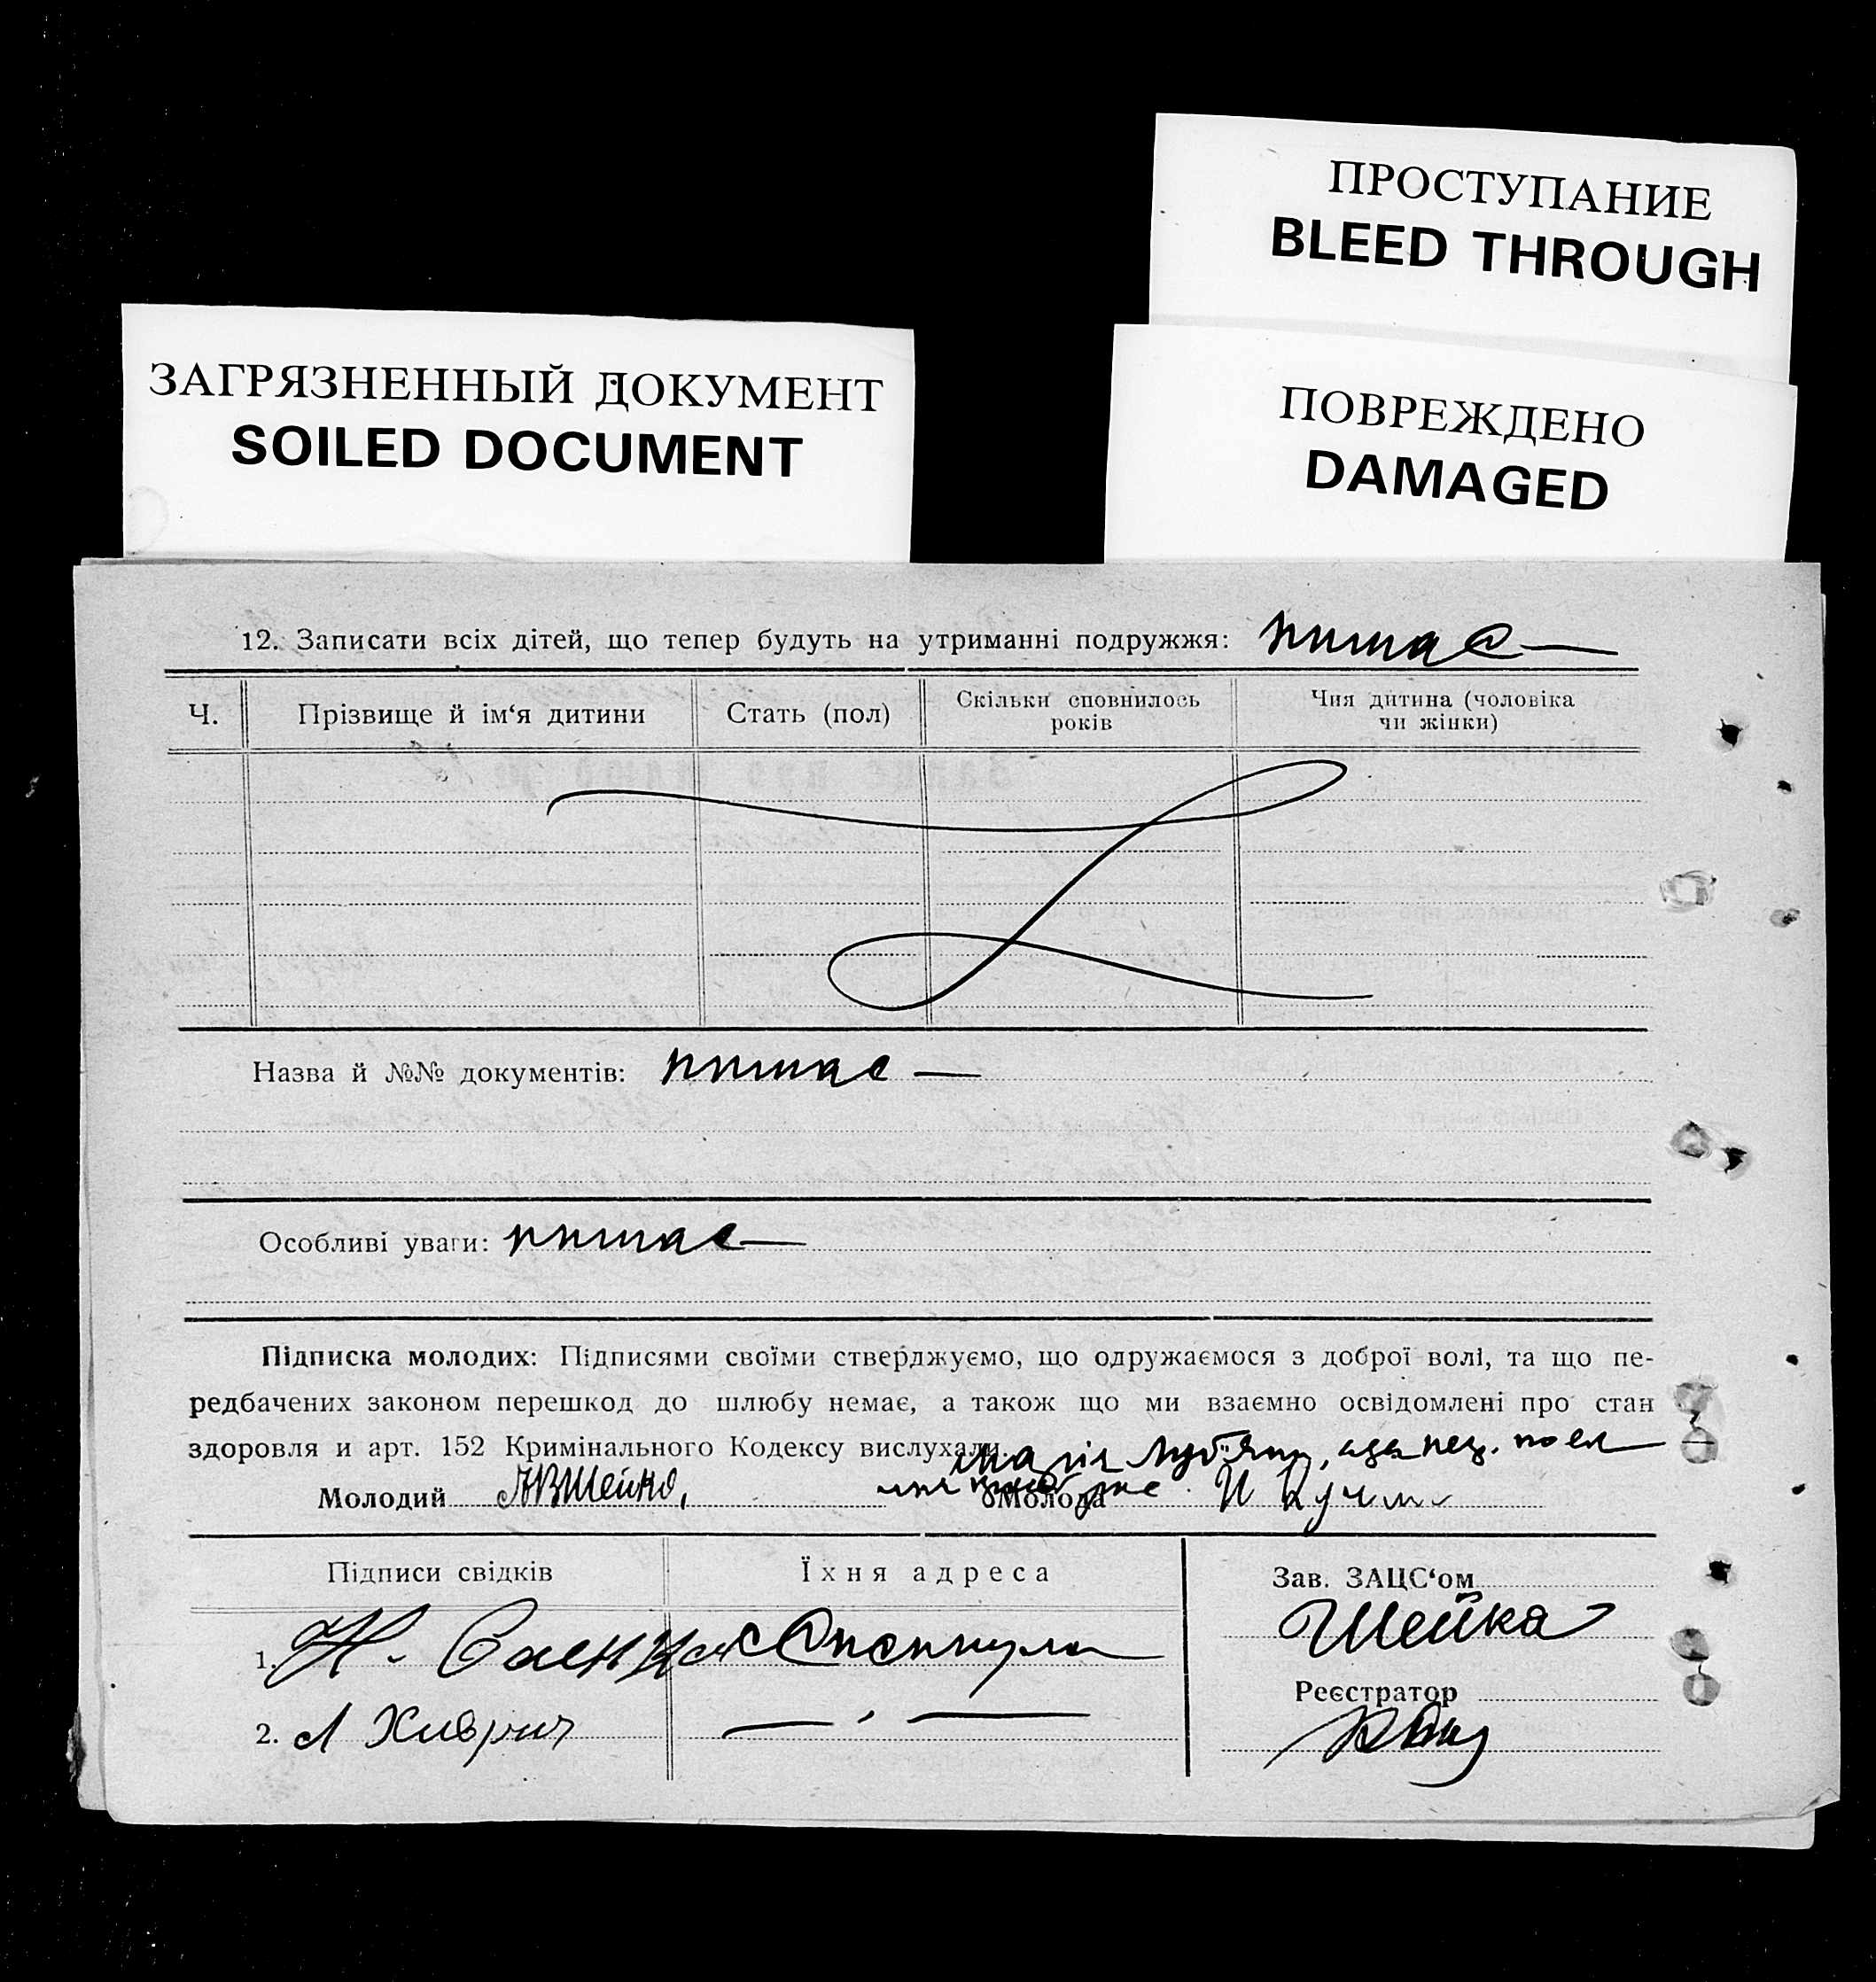 ПРОСТУПАНИЕ
BLEED THROUGH
ЗАГРЯЗНЕННЫЙ ДОКУМЕНТ
SOILED DOCUMENT
ПОВРЕЖДЕНО
DAMAGED
12. Записати всіх дітей, що тепер будуть на утриманні подружжя: немає
Ч. Прізвище й ім‘я дитини Стать (пол) Скільки сповнилось років Чия дитина (чоловіка чи жінки)
Назва й №№ документів: немає
Особливі уваги: немає
Підписка молодих: Підписями своїми стверджуємо, що одружаємося з доброї волі, та що пе-
редбачених законом перешкод до шлюбу немає, а також що ми взаємно освідомлені про стан
здоровля и арт. 152 Кримінального Кодексу вислухали.
Молодий Шейко, Молода
Підписи свідків Їхня адреса Зав. ЗАЦС‘ом
1. Н. Шейка
Реєстратор
2.